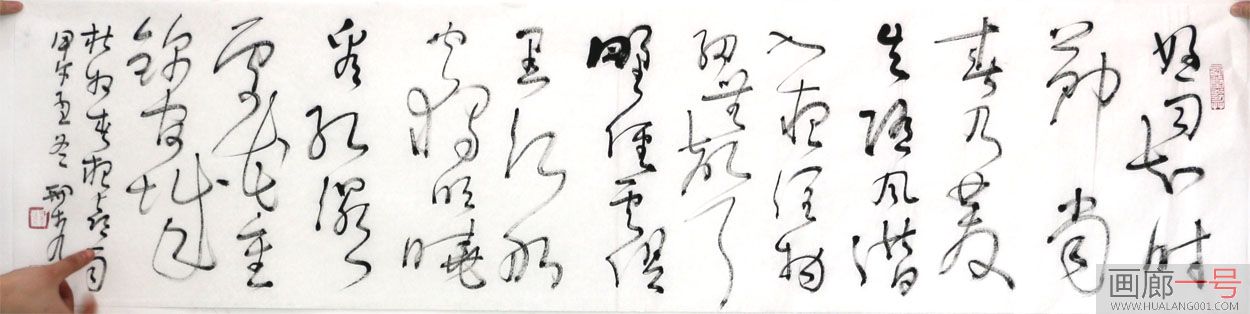 好雨知时
节当
春乃发
生随风潜
入夜润物
细无声
野径云俱
黑江船
火独明晓
看红湿
处花重
锦官城
杜甫春夜喜雨
甲午孟冬
画廊一号
WWW.HUALANG001.COM